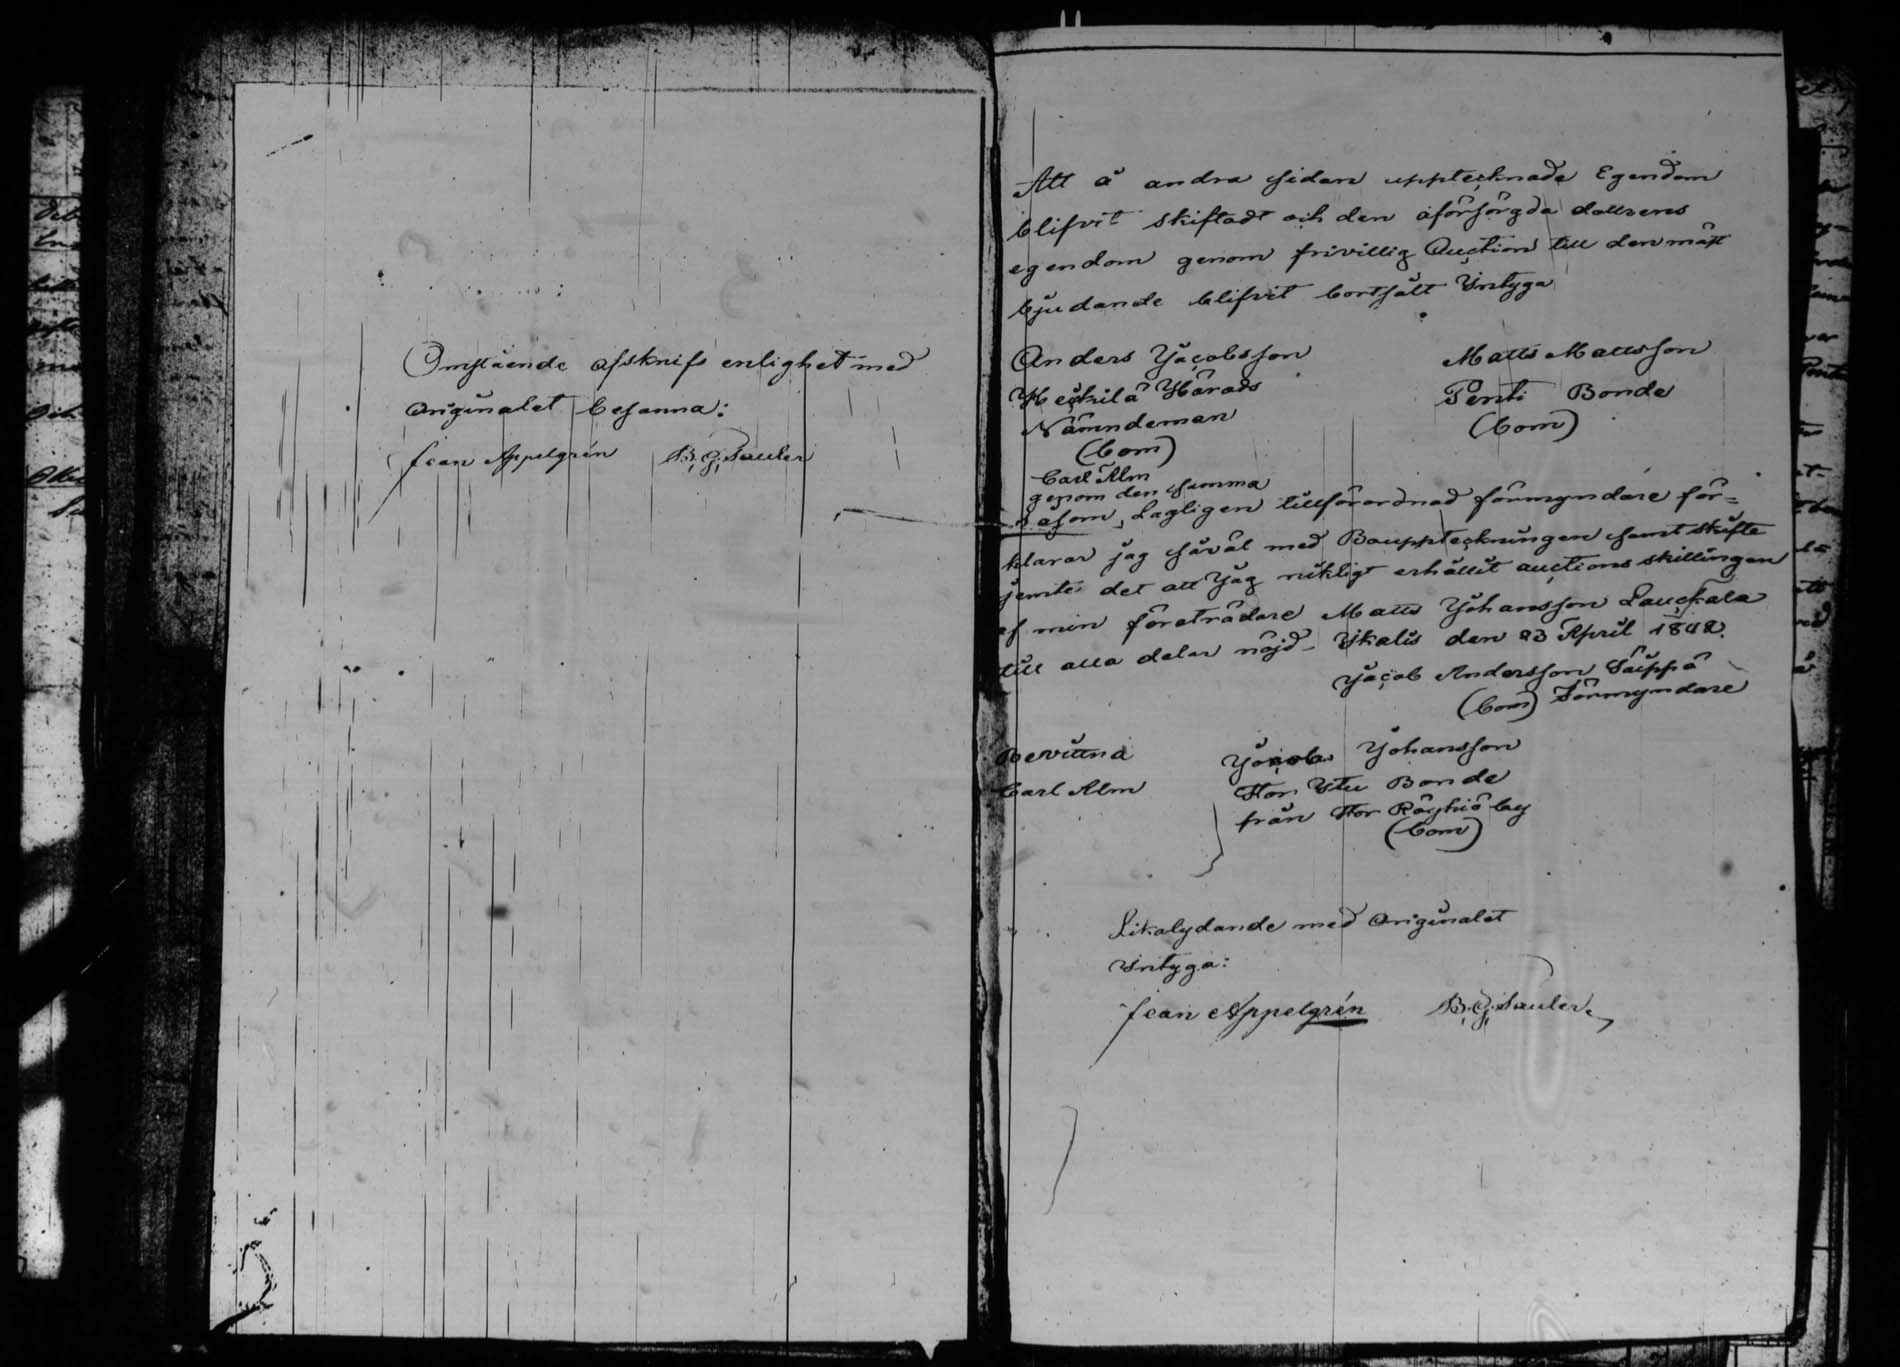 Omstående afskrifs enlighet med
Originalet besanna:
Jean Appelgrén B. G. Sauler
Att å andra sidan upptecknade Egendom
blifvit skiftadt och den oförsörgda dottrens
egendom genom frivillig Auction till den mäst
bjudande blifvit bortsålt Intyga
Anders Jacobsson
Heckilä Härads
Nämndeman
(bom)
Matts Mattsson
Penti Bonde
(bom)
Carl Alm
genom den summa
såsom Lagligen tillförordnad förmyndare för=
klarar jag såväl med Bouppteckningen samt skifte
jemte det att Jag riktigt erhållit auctions skillingen
af min företrädare Matts Johansson Lauckala
till alla delar nöjd - Ikalis den 23 April 1842.
Jacob Andersson Säippä
(bom) Förmyndare
Bevittna
Carl Alm
Jacob Johansson
Stor Itu Bonde
från Stor Röyhiö by
(bom)
Likalydande med Originalet
Intyga:
Jean Appelgrén B. G. Sauler